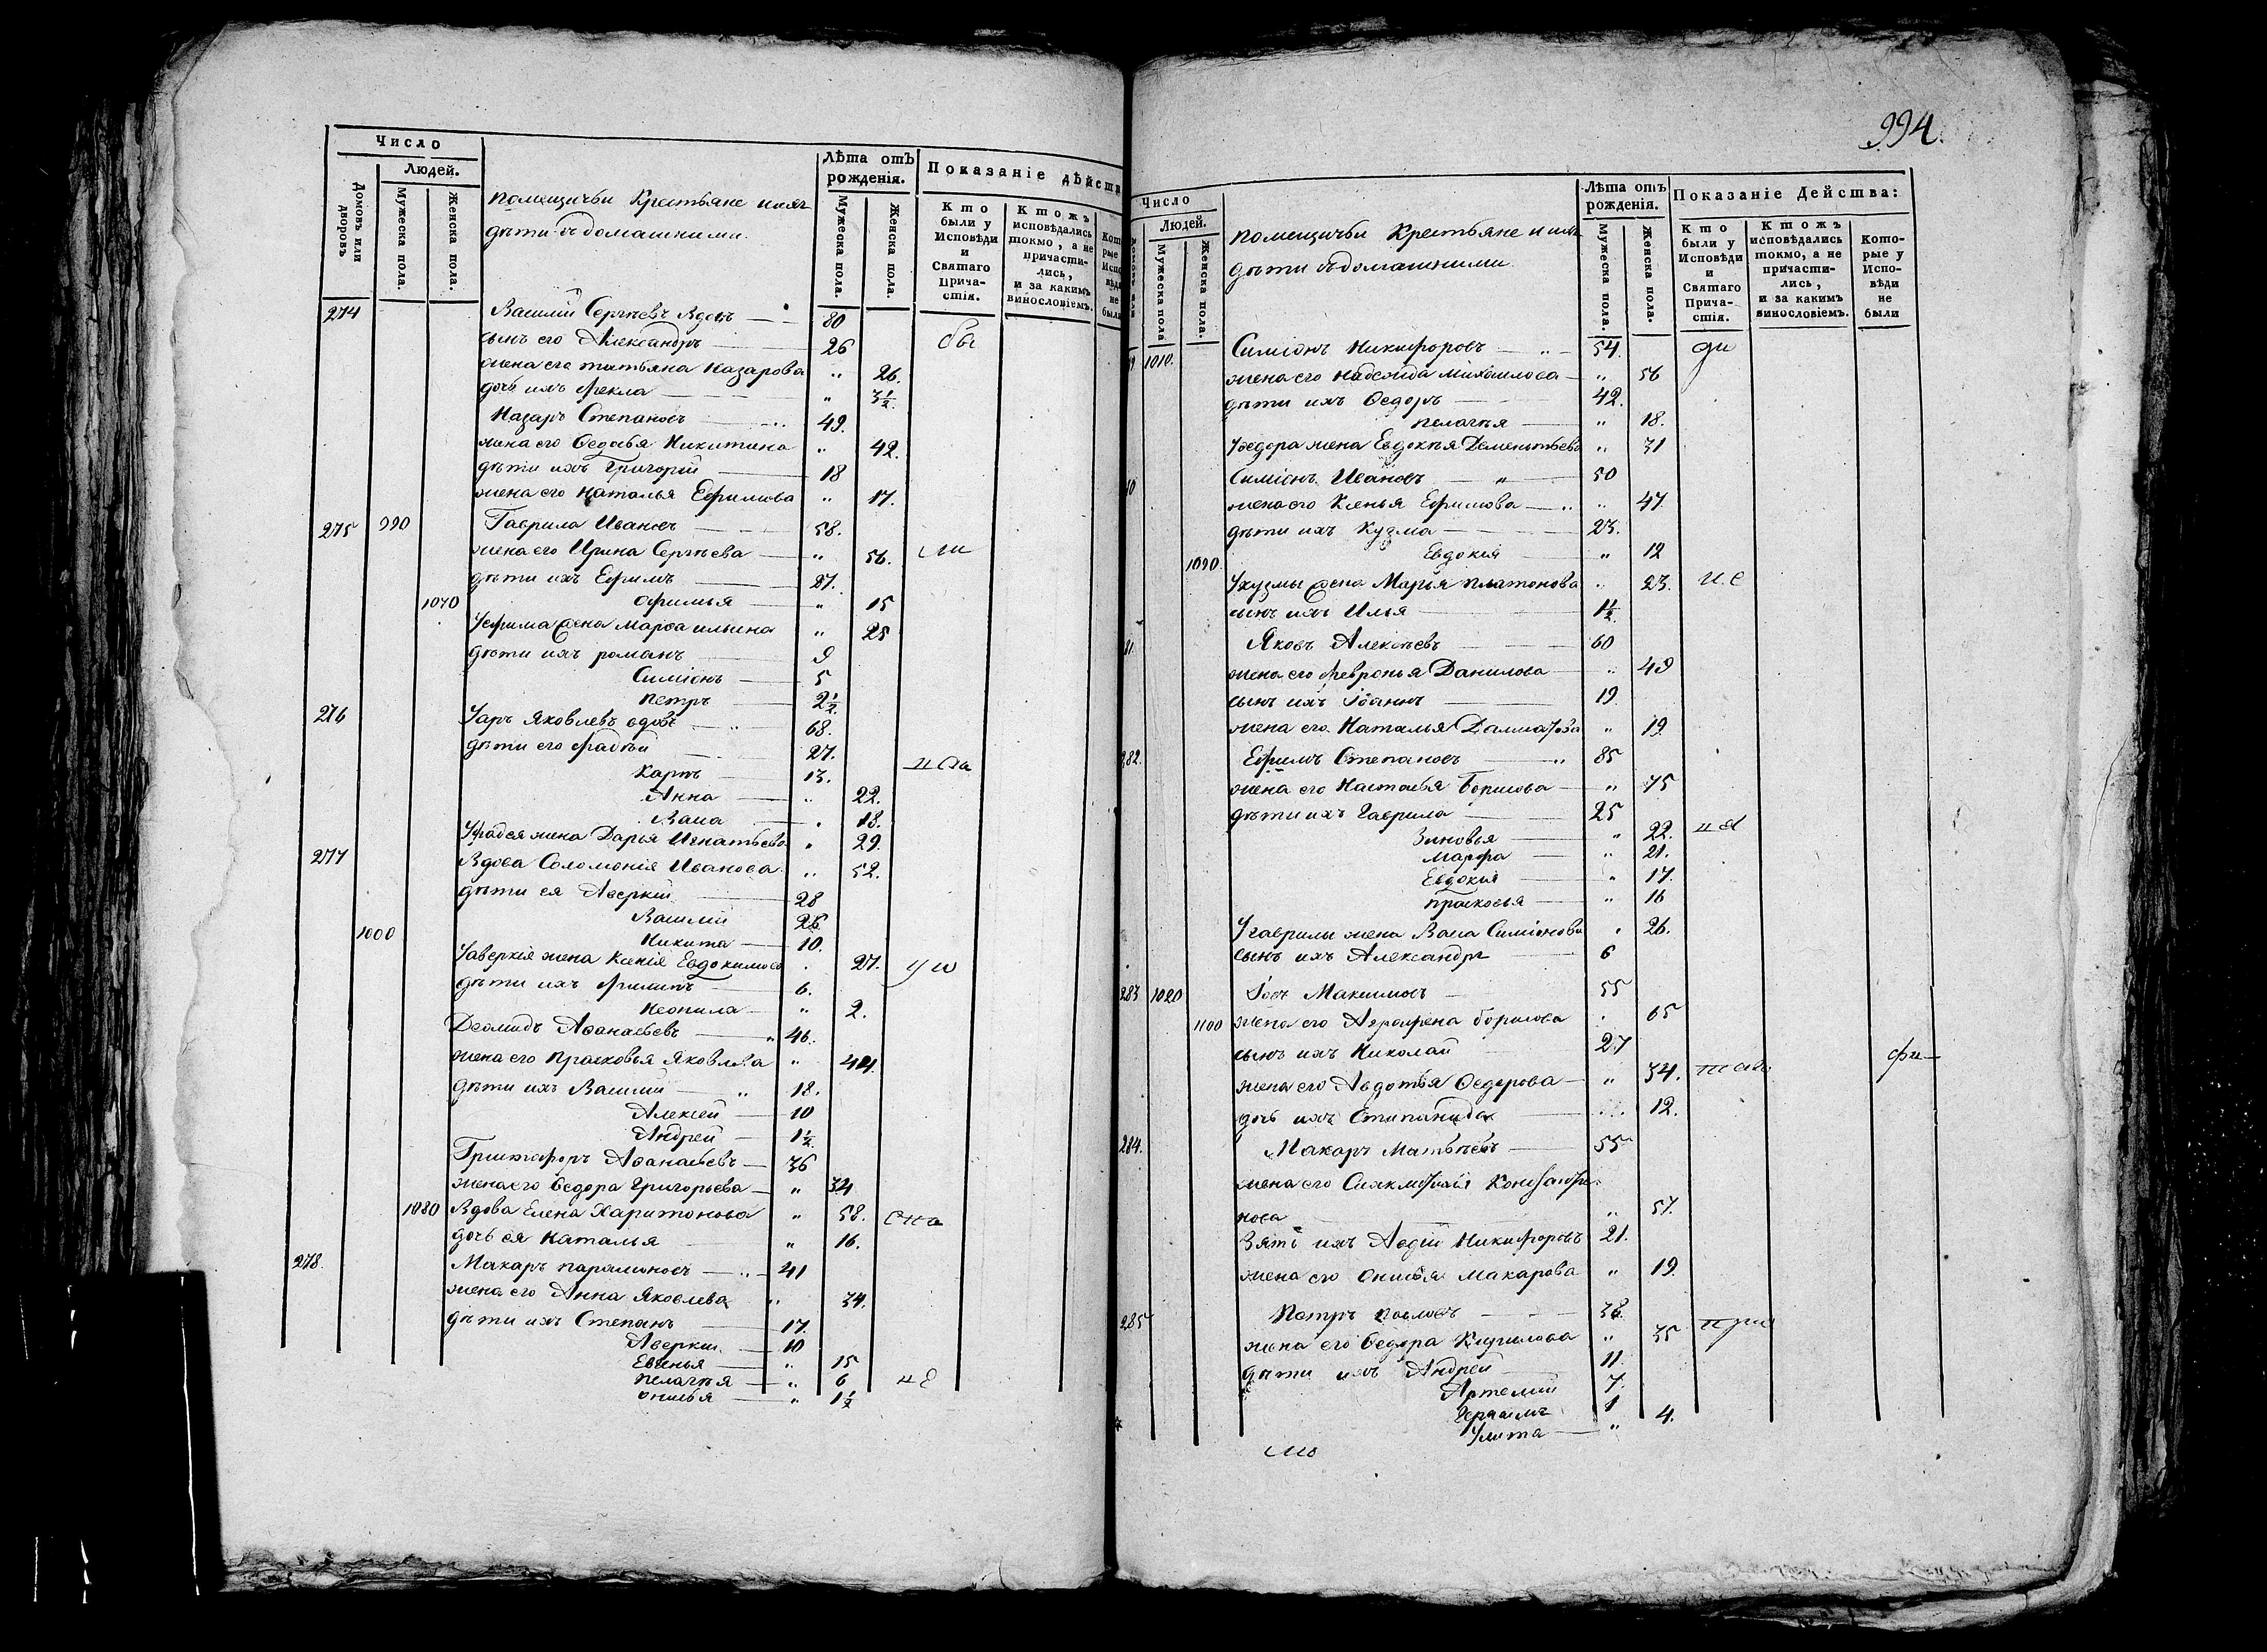 Число
Людей.
Домовъ или дворовъ
Мужеска пола.
Женска пола.
помещичьи Крестьяне и ихъ
дѣти съ домашними.
Лѣта отъ
рожденія.
Мужеска пола.
Женска пола.
Показаніе дѣйств
Кто
были у
Исповѣди
и
Святаго
Прича-
стія.
Ктожъ
исповѣдались
токмо, а не
причасти-
лись,
и за какимъ
винословіемъ.
274 Василий Сергѣевъ вдовъ 80
сынъ его Александръ 26 бы
жена его татьяна назарова " 26.
дочь ихъ Фекла " 3 1/2.
Назаръ Степановъ 49.
жена его Ѳедосья Никитина " 42.
дѣти ихъ Григорій 18
жена его наталья Ефимова " 17.
275 990 Гаврила Ивановъ 58.
жена его Ирина Сергѣева " 56. ли
дѣти ихъ Ефимъ 27.
1070 Офимья " 15
Уефима жена Марѳа ильина " 25
дѣти ихъ романъ 9
Симіонъ 5
Петръ 2 1/2.
276 Уаръ Яковлевъ вдовъ 68.
дѣти его Фадѣй 27.
Карпъ 13.
Анна " 22.
Васа " 18.
Уфадея жена Дарья Игнатьева " 29.
277 Вдова Соломонія Иванова " 52.
дѣти ея Аверкій 28
Василій 26
1000 Никита 10.
Уаверкія жена Ксенія Евдокимова 27. у ю
дѣти ихъ Филипъ 6.
Неонила " 2.
Деомидъ Аѳанасьевъ 46.
жена его Прасковья Яковлева " 44.
дѣти ихъ Василій 18.
Алексей 10
Андрей 1 1/2.
Аѳанасьевъ 36
жена его Ѳедора Григорьева " 34
1080 Вдова Елена Харитонова " 58.
дочь ея Наталья " 16.
278. Макаръ парамоновъ 41
жена его Анна Яковлева " 34.
дѣти ихъ Степанъ 17.
Аверкій 10
Евгенья " 15
пелагѣя " 6 не
онисья " 1 1/2
994.
Число
Людей.
Мужеска пола
Женска пола.
помещичьи Крестьяне и ихъ
дѣти съ домашними
Лѣта отъ
рожденія.
Мужеска пола.
Женска пола.
Показаніе Действа:
Кто
были у
Исповѣди
и
Святаго
Прича-
стія.
Ктожъ
исповѣдались
токмо, а не
причасти-
лись,
и за какимъ
винословіемъ.
Кото-
рые у
Испо-
вѣди
не
были
1010. Симіонъ Никифоровъ 54. ди
жена его надежда михаилова " 56
дѣти ихъ Ѳедоръ 42.
пелагѣя " 18.
Уѳедора жена Евдокѣя Дементьева " 31
Симіонъ Ивановъ " 50
жена его Ксенья Ефимова " 47.
дѣти ихъ Кузма 23.
1090. Евдокия " 12
Укузмы жена Марья платонова " 23.
сынъ ихъ Илья 1 1/2.
Яковъ Алексѣевъ 60
жена его Февронья Данилова " 49
сынъ ихъ Іоаннъ 19
жена его Наталья " 19
282. Ефимъ Степановъ 85
жена его Настасья борисова " 75
дѣти ихъ Гаврила 25
Зиновья " 22.
Марфа " 21.
Евдокия " 17.
прасковья " 16
Угаврилы жена Васа Симіонова " 26.
сынъ ихъ Александръ 6
283 1020 Іовъ Максимовъ 55
1100 жена его Аграфена борисова 65
сынъ ихъ Николай 27
жена его Авдотья Ѳедорова " 34.
дочь ихъ Степанида 12.
284. Макаръ Матвѣевъ 55
жена его
нова " 57.
Зять ихъ Авдій Никифоровъ 21.
жена его онисья макарова " 19.
285 Петръ павловъ 38.
жена его Ѳедора Кирилова " 35 при
дѣти ихъ Андрей 11.
Артемій 7.
Герасимъ 1
Улита " 4.